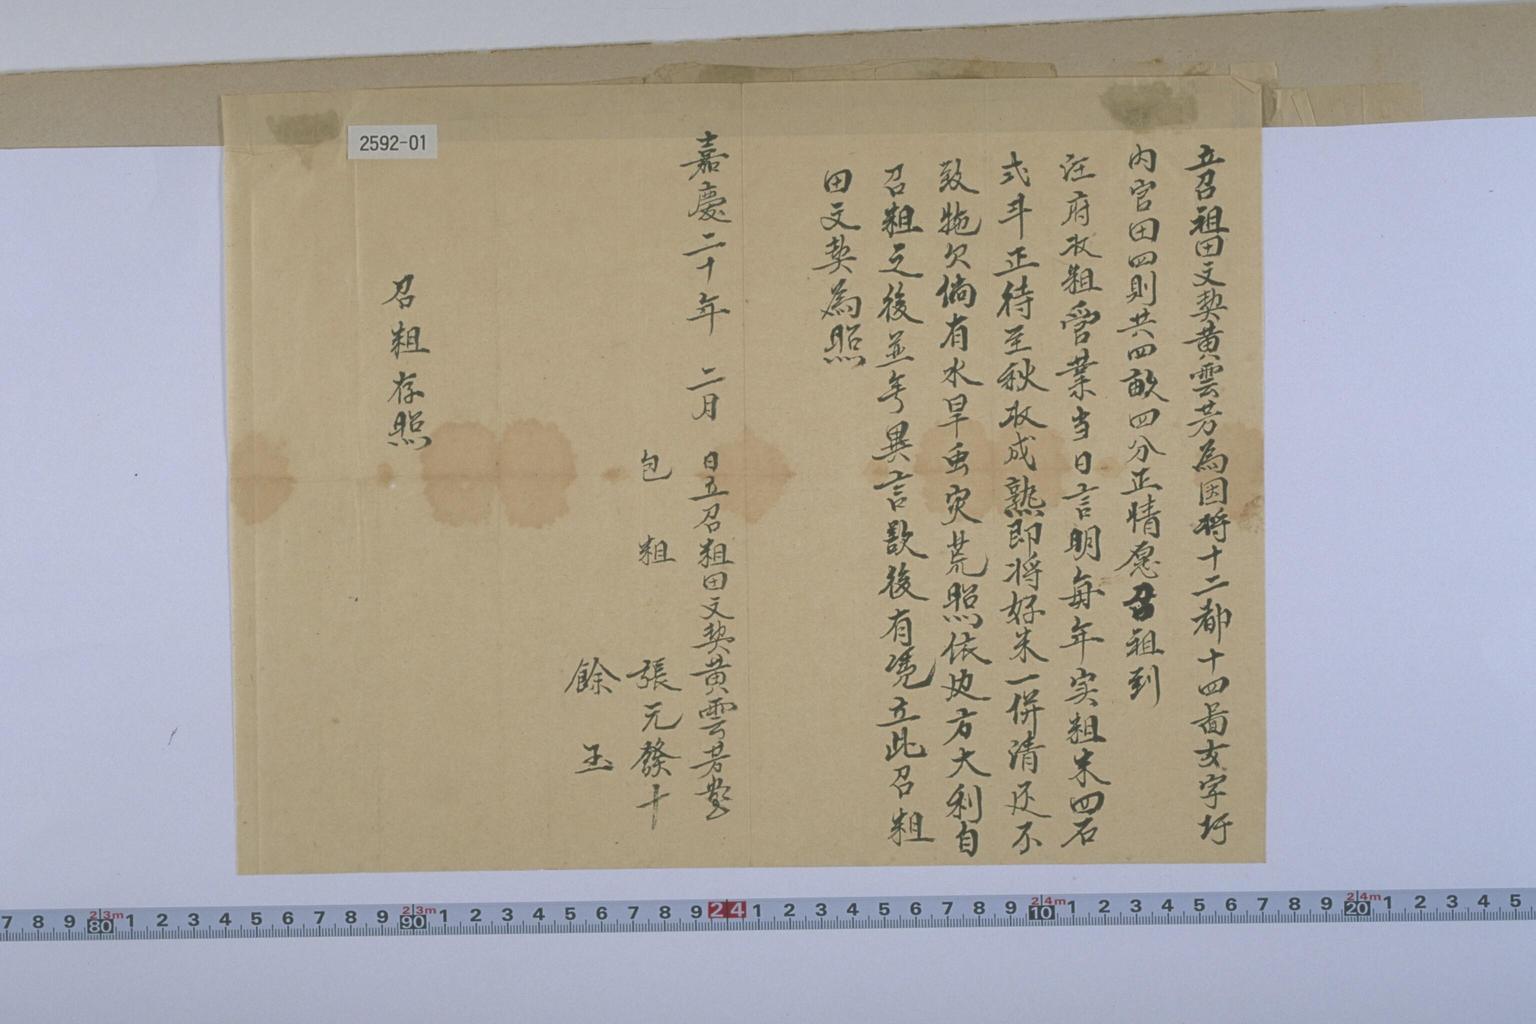 立召租田文契黄雲芳為因将十二都十四啚玄字圩
内官田四則共四畝四分正情愿召租到
汪府収粗营葉当日言明毎年实粗米四石
弍斗正待至秋収成熟即将好米一併清还不
致拖欠倘有水旱虫灾荒照依地方大利自
召粗之後並无異言歇後有凭立此召粗
田文契為照
嘉慶二十年 二月 日立召粗田文契黄雲芳
包 粗 張元發十
餘 玉
召粗存照
2592-01